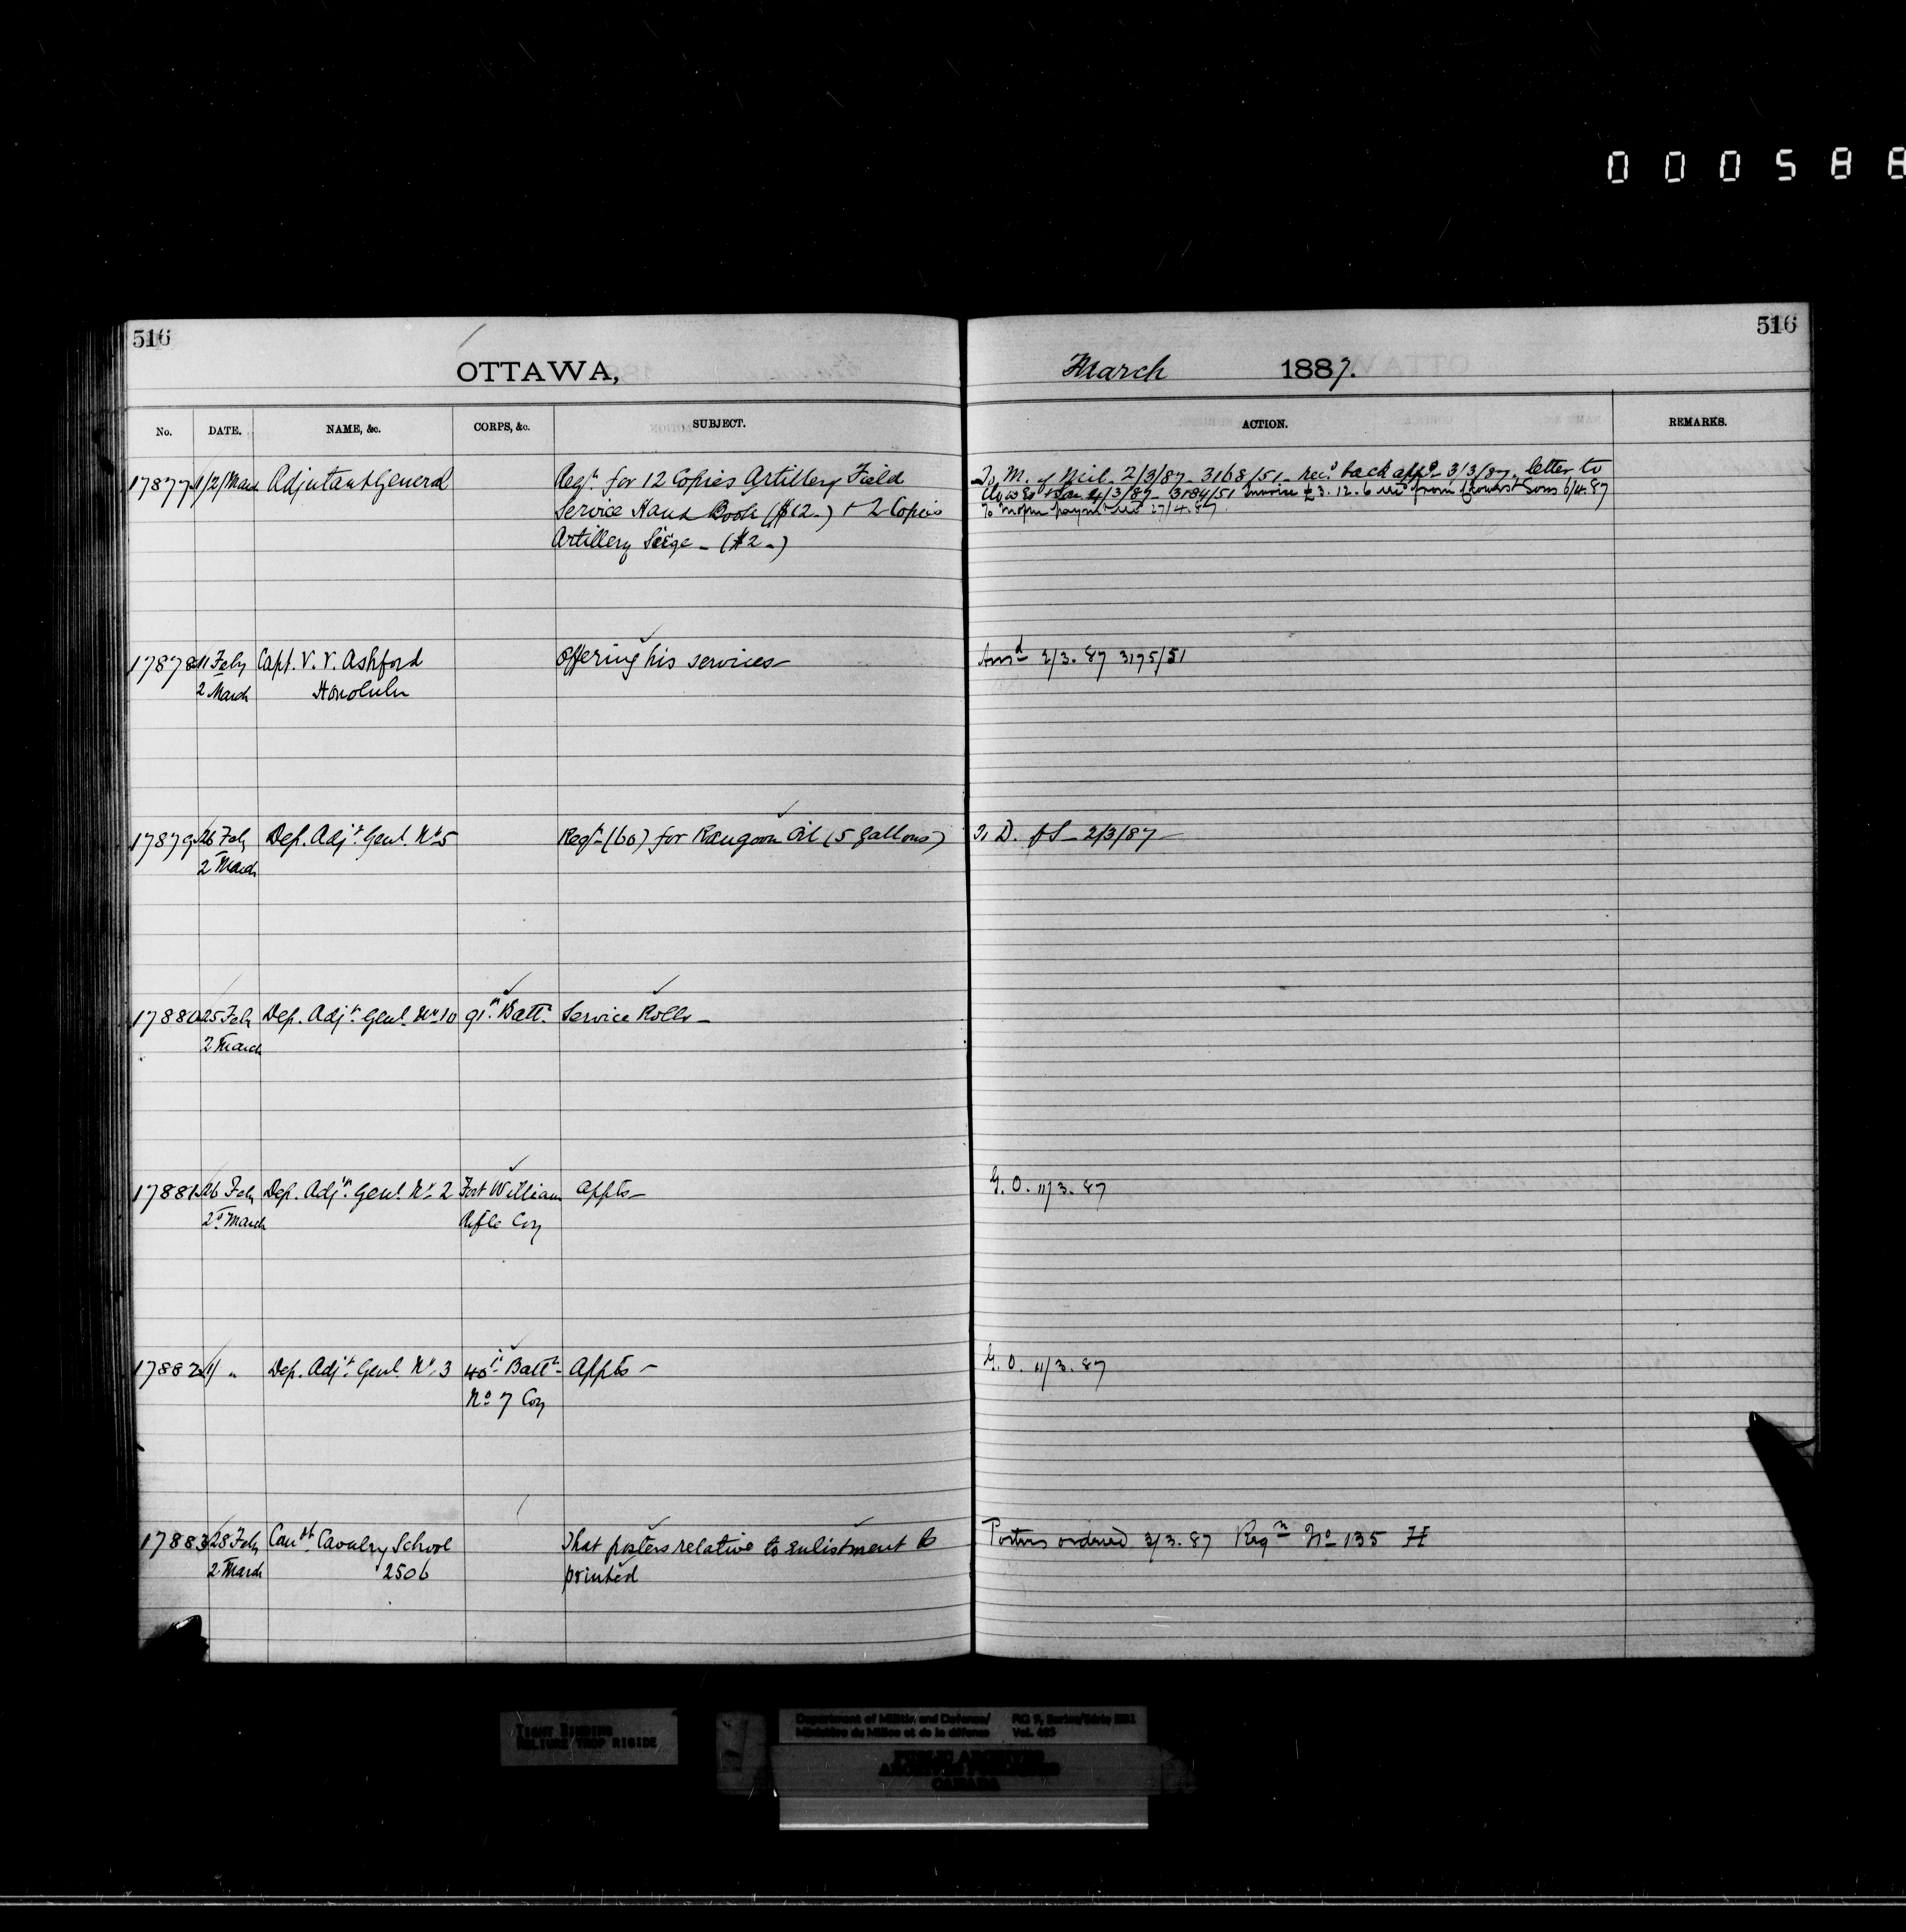 000588
516
516
OTTAWA,
March 1887.
No. DATE. NAME, &c. CORPS, &c. SUBJECT. ACTION. REMARKS.
17877 1/2/March Adjutant General Reqn. for 12 Copies Artillery Field
Service Hand Book ($12.) + 2 Copies
Artillery Seige - ($2-)
To M. of Mil. 2/3/87 - 3168/51 - rec'd back appd - 3/3/87. letter to
4/3/87 - 3184/51 Invoice £3.12.6 from Sons 6/4.87
To 27/4.87
17878 11 Feby Capt. V. V. Ashford Offering his services - Ansd 2/3.87 3175/51
2 March Honolulu
17879 26 Feby Dep. Adjt. Genl. No 5 Reqn (60) for Rangoon Oil (5 gallons) To D. of S - 2/3/87 -
2 March
17880 25 Feby Dep. Adjt. Genl. No 10 91st Battn. Service Rolls -
2 March
17881 26 Feby Dep. Adjt. Genl. No 2 Fort William Appts - G.O. 11/3.87
2d March Rifle Coy
17882 1/ " Dep. Adjt. Genl. No 3 40th Battn - Appts - G.O. 11/3.87
No 7 Coy
17883 28 Feby Comdt Cavalry School That posters relative to enlistment be Posters ordered 3/3.87 Reqn No 135 H
2 March 2506 printed
TIGHT BINDING
RELIURE TROP RIGIDE
Department of Militia and Defence/ RG 9, Series/Série
Ministère du Milice et de la défense Vol.
PUBLIC ARCHIVES
ARCHIVES PUBLIQUES
CANADA